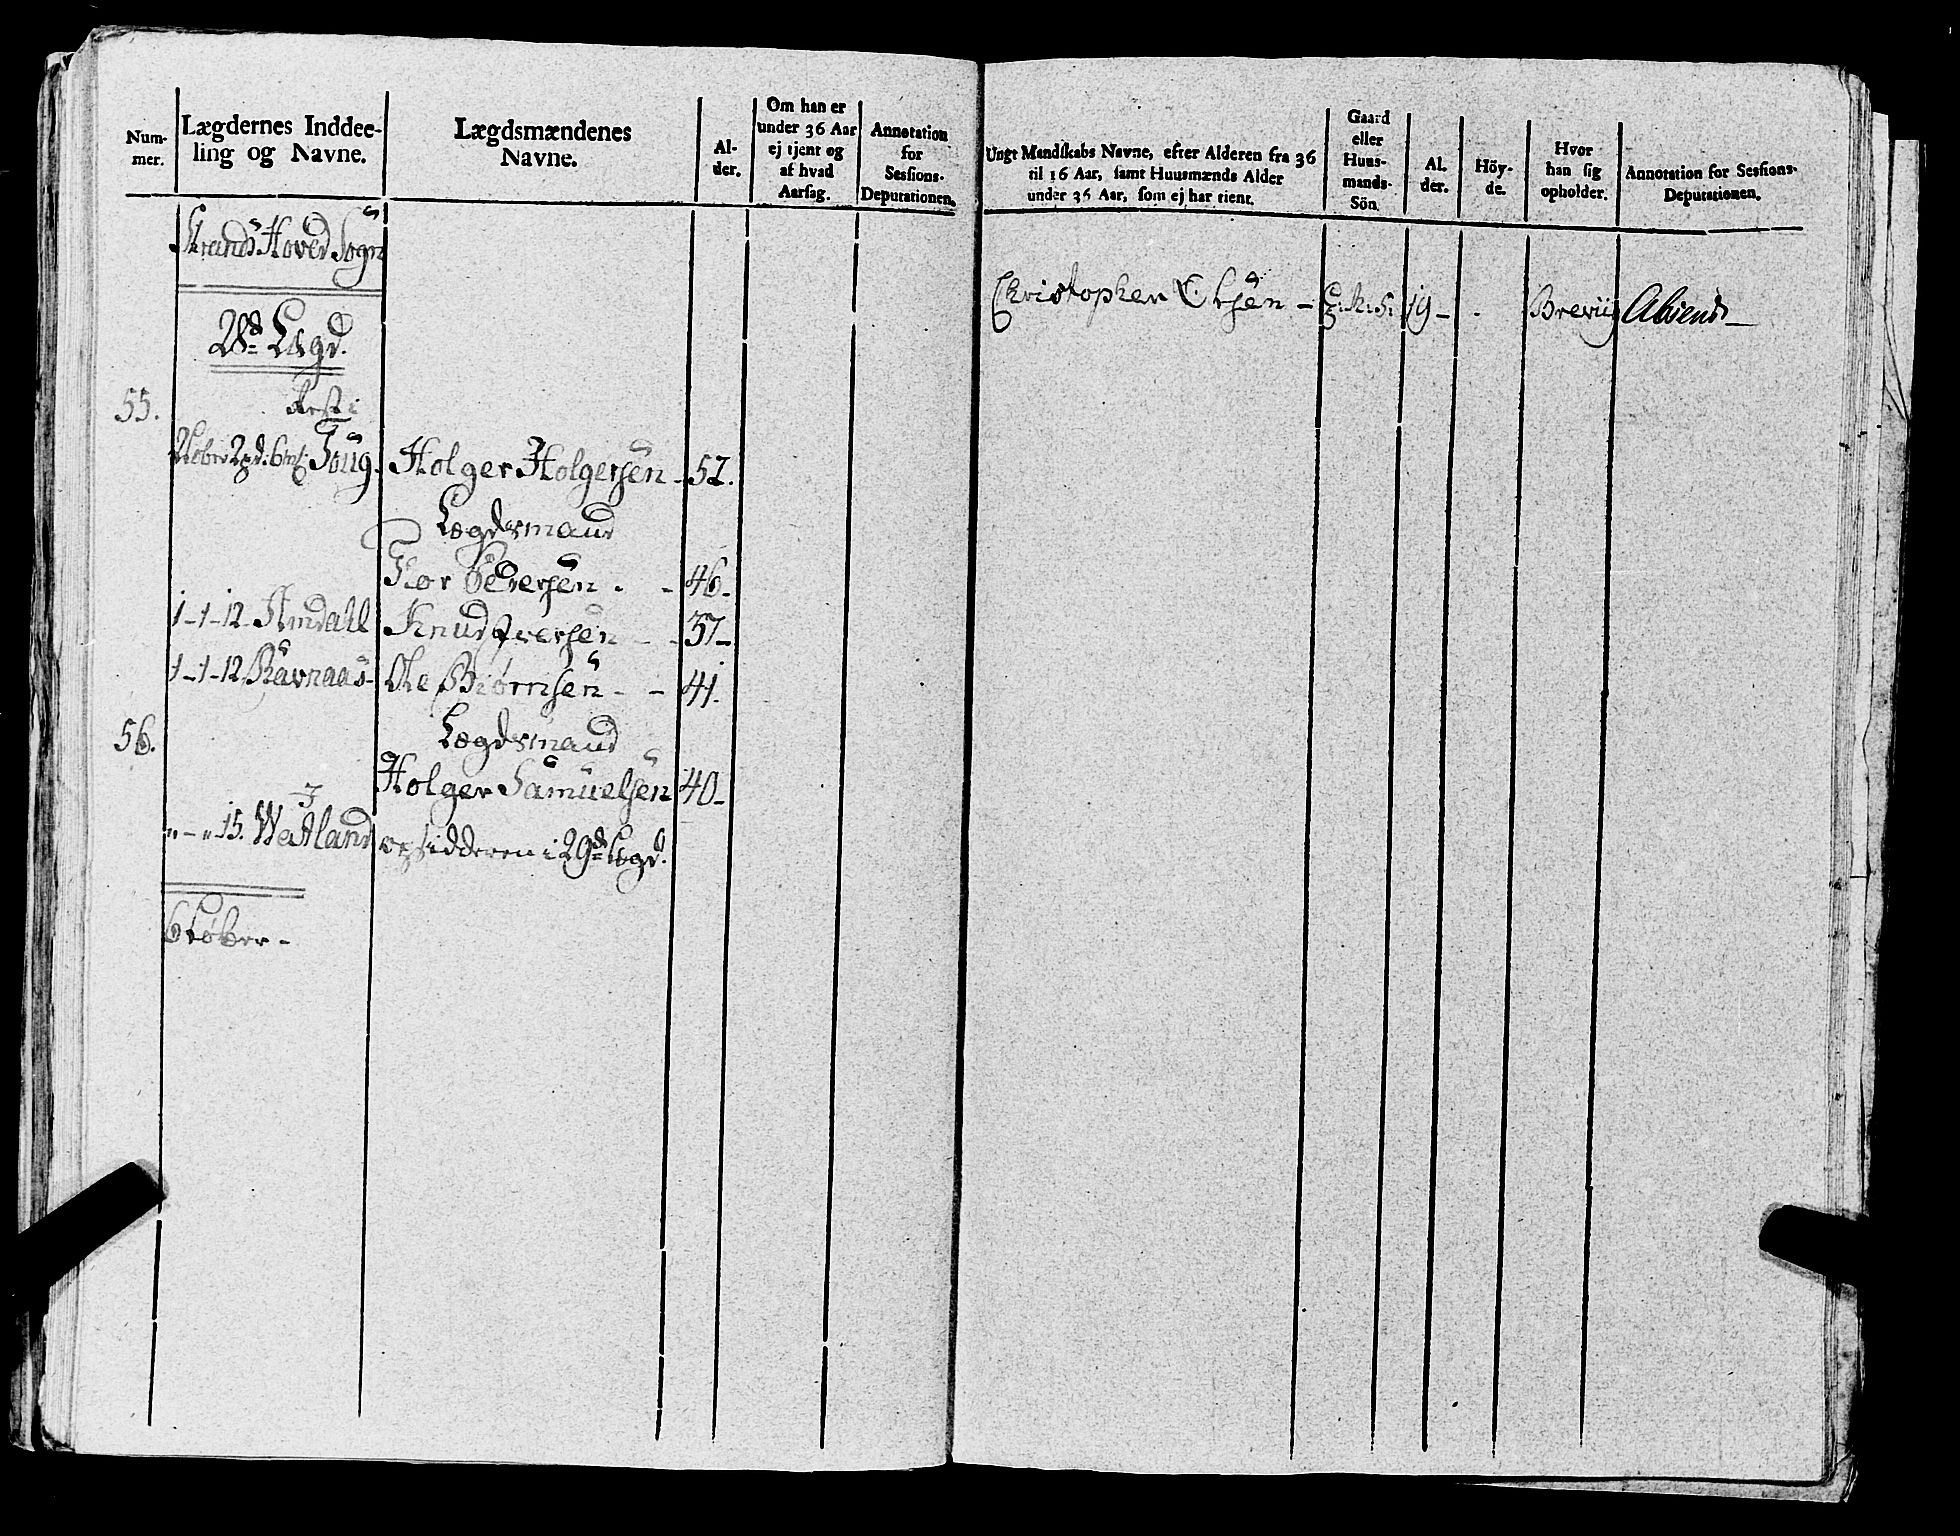 Num-
mer.
Lægdernes Inddee-
ling og Navne.
Lægdsmændenes
Navne.
Al-
der.
Om han er
under 36 Aar
ej tjent og
af hvad
Aarsag.
Annotation
for
Sessions-
Deputationen.
Strands Hoved Sogn
28de Lægd.
55.
Rest i
2 Løber 2 pd: 6 mk: Toug. Holger Holgersen - 52.
Lægdsmand
Thor Pedersen. - 46-
1-1-12 Amdahl Knud Iversen - - 37-
1-1-12 Ravnaas- Ole Biørnsen - - 41.
56.
Lægdsmand
Holger Samuelsen 40-
I
" - " 15. Watland opsidderen i 29de Lægd.
6 Løber -
Ungt Mandskabs Navne, efter Alderen fra 36
til 16 Aar, samt Huusmænds Alder
under 36 Aar, som ej har tient.
Gaard
eller
Huus-
mands-
Sön.
Al-
der.
Höy-
de.
Hvor
han sig
opholder.
Annotation for Sessions-
Deputationen.
Christopher Elsen - 19 - Breviig Absend -